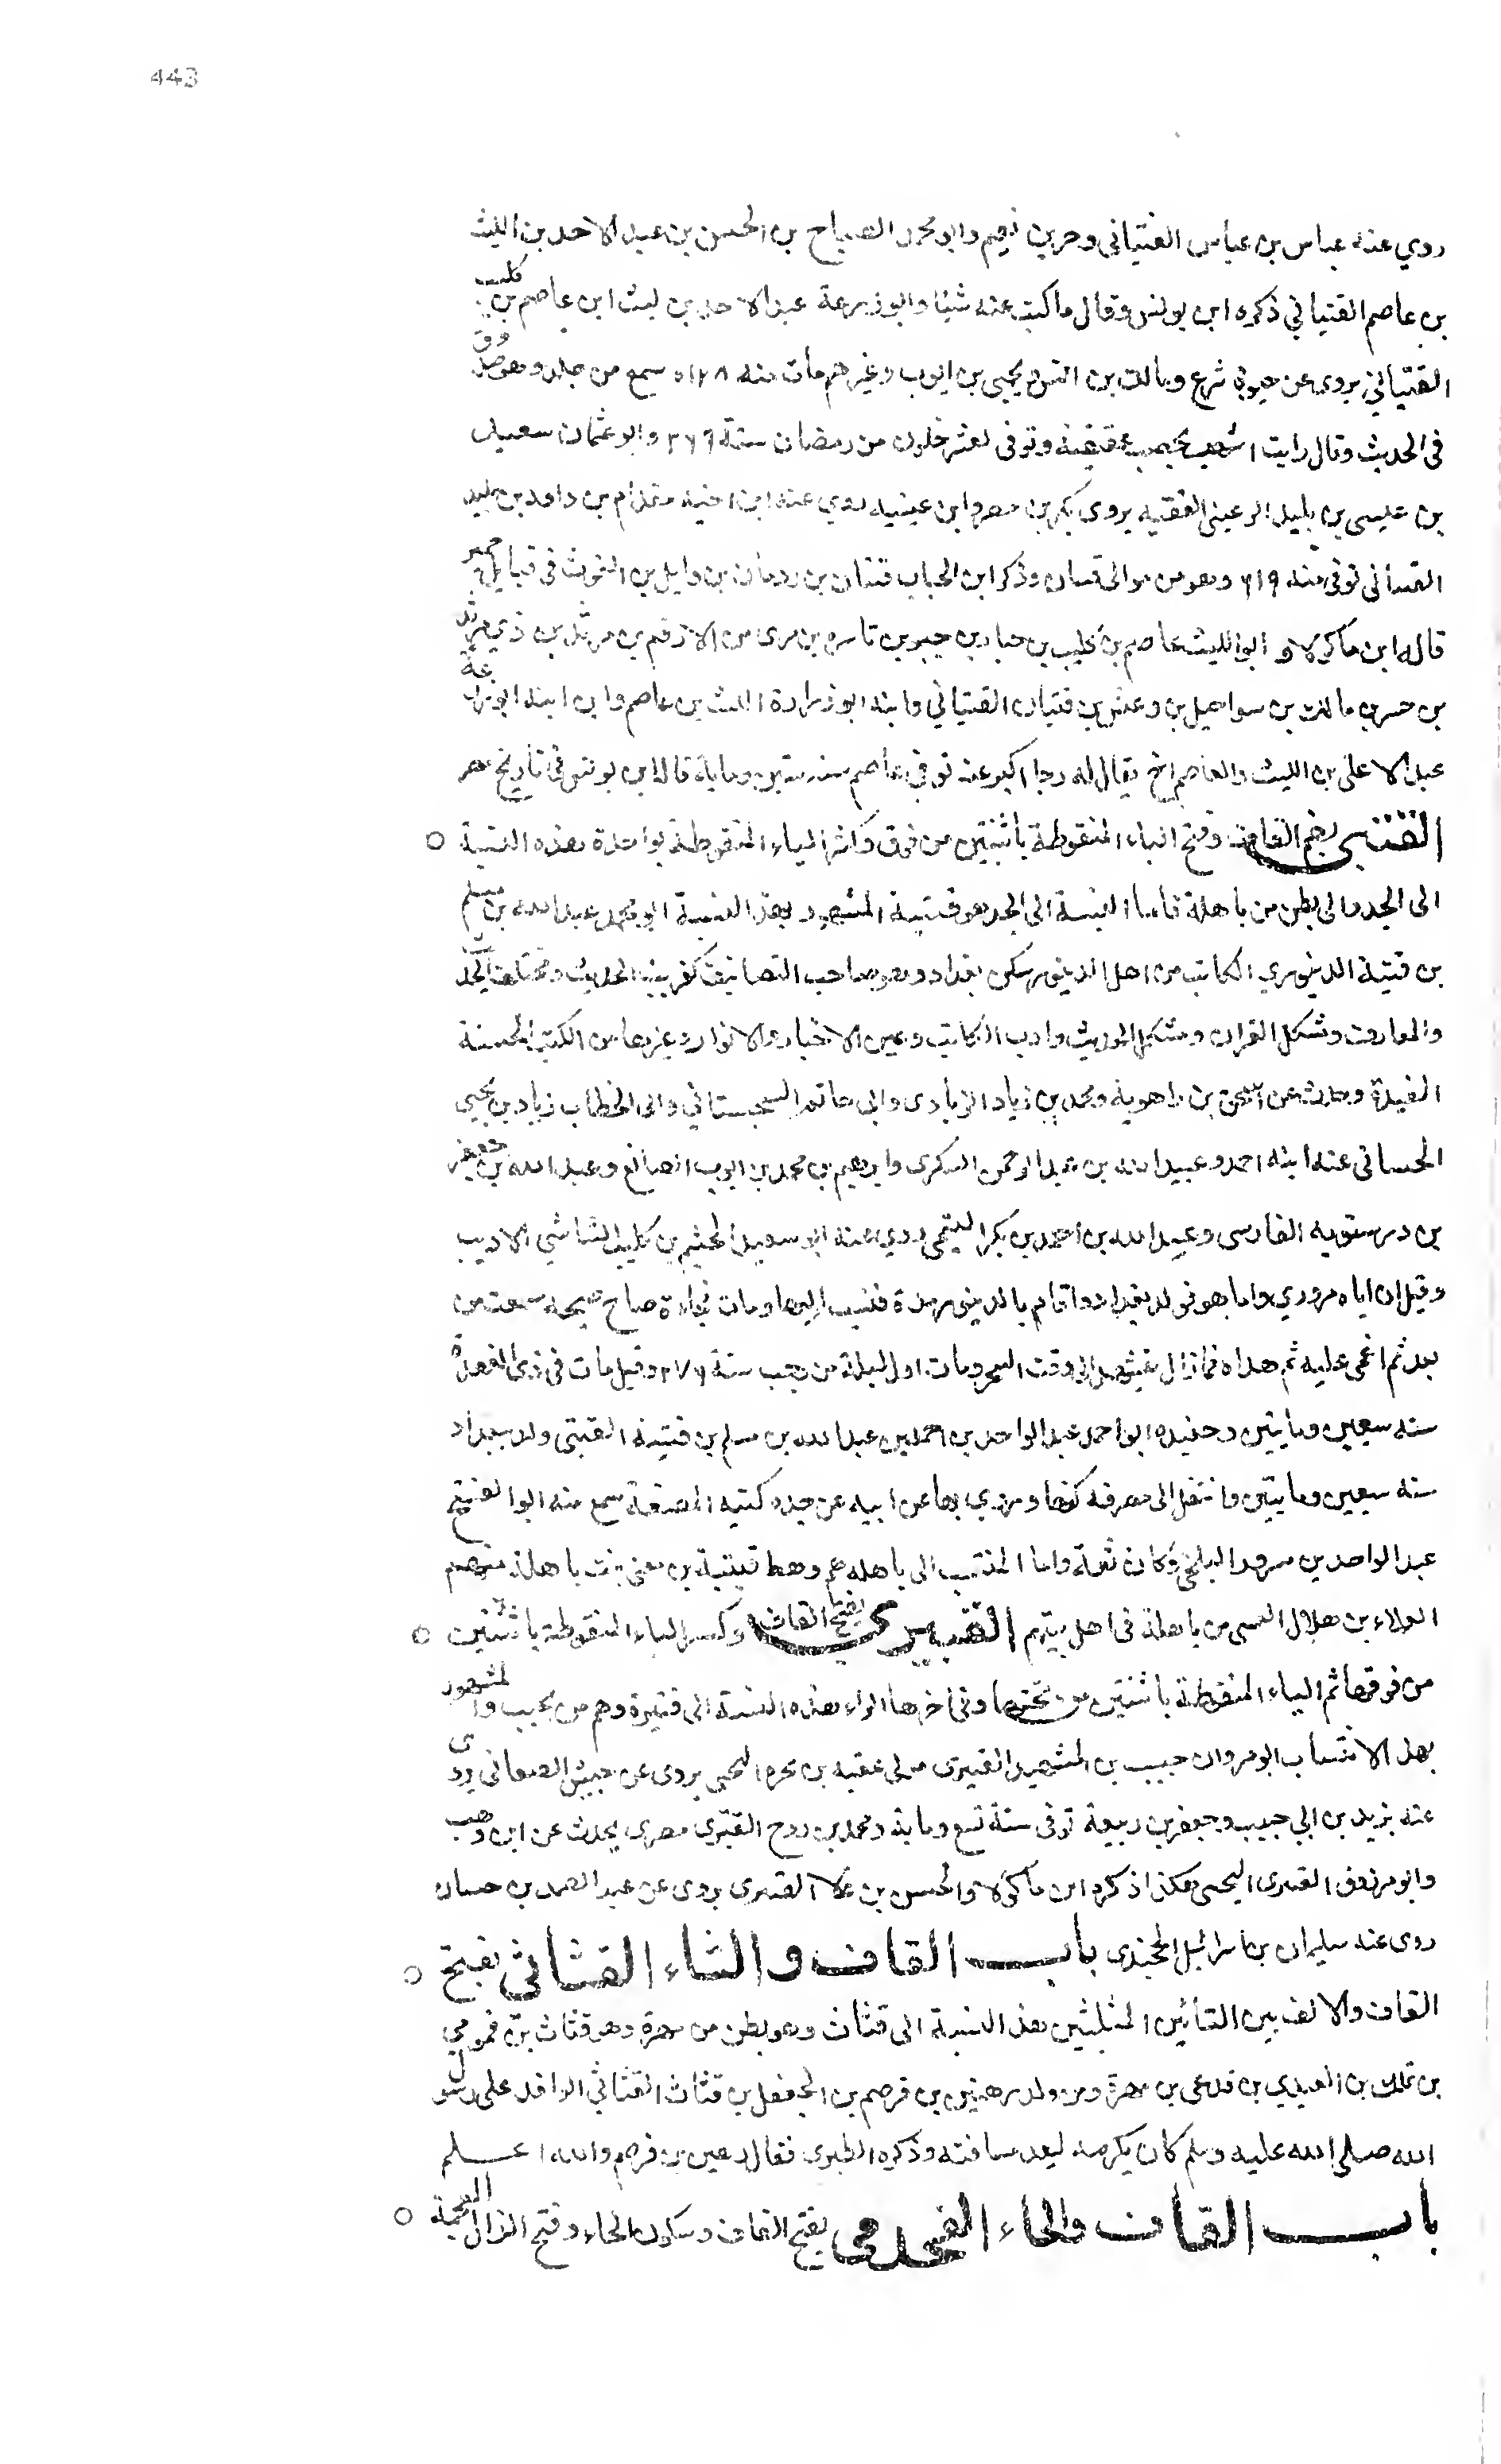 443
روي عنه عباس بن عباس القتباني وحر بن نعيم وابو محمد الصباح بن الحسن بن عبد الاحد بن الليث
بن عاصم القتباني ذكره ابن يونس وقال ما كتبت عنه شيًا وابو زرعة عبد الاحد بن ليث ابن عاصم بن كليب
القتباني يروى عن حيوة شريح ومالك بن انس يحيى بن ايوب وغيرهم مات سنه سمع من جده وهو صدوق
في الحديث وقال رايت اشهب يخضب عنفقته وتوفى لعشر خلون من رمضان سنة وابو عثمان سعيد
بن عيسى بن بليد الرعينى الفقيه يروى بكر بن مضر وابن عيينه روي عنه ابن اخيه مقدام بن داود بن بليد
القتبانى توفى سنه ٢١٩ وهو من موالى قتبان وذكر ابن الحباب قتبان بن ردمان بن وايل بن الغوث فى قبايل حمير
قاله ابن ماكولا و ابو الليث عاصم بن كليب بن خيار بن جبر بن ناسره بن مرى بن الارقم بن مرثد بن ذي مرثد
بن حسر بن مالك بن سواحيل بن وعش بن قتبان القتباني وابنه ابو زرارة الليث بن عاصم وابن ابنه ابو زرعة
عبد الاعلى بن الليث والعاصم اخ يقال له رجا اكبر عنه توفي عاصم سنه ستين وماية قاله ابن يونس فى تاريخ مصر
القتبى بضم القاف وفتح التاء المنقوطة باثنتين من فوق وكسر الباء المنقوطة بواحدة هذه النسبة
الى الجد والى بطن من باهلة فاما النسبة الى الجد هو قتيبة المشهور بهذ النسبة ابو محمد عبد الله بن مسلم
بن قتيبة الدينوري الكاتب من اهل الدينور سكن بغداد وهو صاحب التصانيف كغريب الحديث ومختلف الحديث
والمعارف ومشكل القران ومشكل الحديث وادب الكاتب وعيون الاخبار والانوار وغيرها من الكتب الحسنة
المفيدة وحدث عن اسحق بن راهوية ومحمد بن زياد الزيادى وابى حاتم السجستاني وابى الخطاب زياد بن يحيى
الحسانى عنه ابنه احمد وعبيد الله بن عبد الرحمن السكرى وابرهيم بن محمد بن ايوب الصائغ وعبد الله بن جعفر
بن درستويه الفارسى وعبيد الله بن احمد بن بكر التيمى روي عنه ابو سعيد الهيثم بن كليب الشاشي الاديب
وقيل ان اباه مروزي واما هو فولد بغداد واقام بالدينور مدة فنسب اليها ومات فجاءة صاح صيحه سمعت من
بعد ثم اغمى عليه ثم هداء فما زال يتشهد الى وقت السحر ومات اول ليلة من رجب سنة ٢٧٦ وقيل مات فى ذى القعدة
سنه سبعين ومايتين وحفيده ابو احمد عبد الواحد بن احمد بن عبد الله بن مسلم بن قتيبة القتبى ولد ببغداد
سنه سبعين ومايتين وانتقل الى مصر فسكنها وروي بها عن ابيه عن جده كتبه المصنفة سمع منه ابو الفتح
عبد الواحد بن مسرور البلخي وكان ثقة واما المنتسب الى باهله هم رهط قتيبة بن معنى بنت باهلة منهم
العلاء بن هلال القتبى من باهلة فى اهل بيتهم القتيرى بفتح القاف وكسر التاء المنقوطة باثنتين
من فوقها ثم الياء المنقوطة باثنتين من تحتها وفى اخرها الراء هذه النسبة الى قتيرة وهم من تجيب والمشهور
بهذ الانتساب ابو مروان حبيب بن الشهيد القتيرى مولى عقبه بن بحره التجيبى يروى عن حنش الصنعانى روى
عنه يزيد بن ابي حبيب وجعفر بن ربيعة توفى سنة تسع وماية ومحمد بن روح القتيرى مصرى يحدث عن ابن وهب
وابو مرزوق القتيرى التجيبى هكذا ذكره ابن ماكولا والحسن بن علا القتيرى يروى عن عبد الصمد بن حسان
روى عنه سليمان بن اسرائيل الخجندى باب القاف والثاء القثاثي بفتح
القاف والالف بين الثائين المثلثين هذ النسبة الى قثاث وهو بطن من مهرة وهو قثاث بن قمومي
بن بن العيدي بن ندغى بن مهرة ومن ولد زهير بن قرضم بن الجعفل بن قثاث القثاثي الوافد على رسول
الله صلى الله عليه وسلم كان يكرمه لبعد مسافته وذكره الطبرى فقال زهير بن قرضم والله اعلم
باب القاف والحاء القحذمي بفتح القاف وسكون الحاء وفتح الذال المعجمة